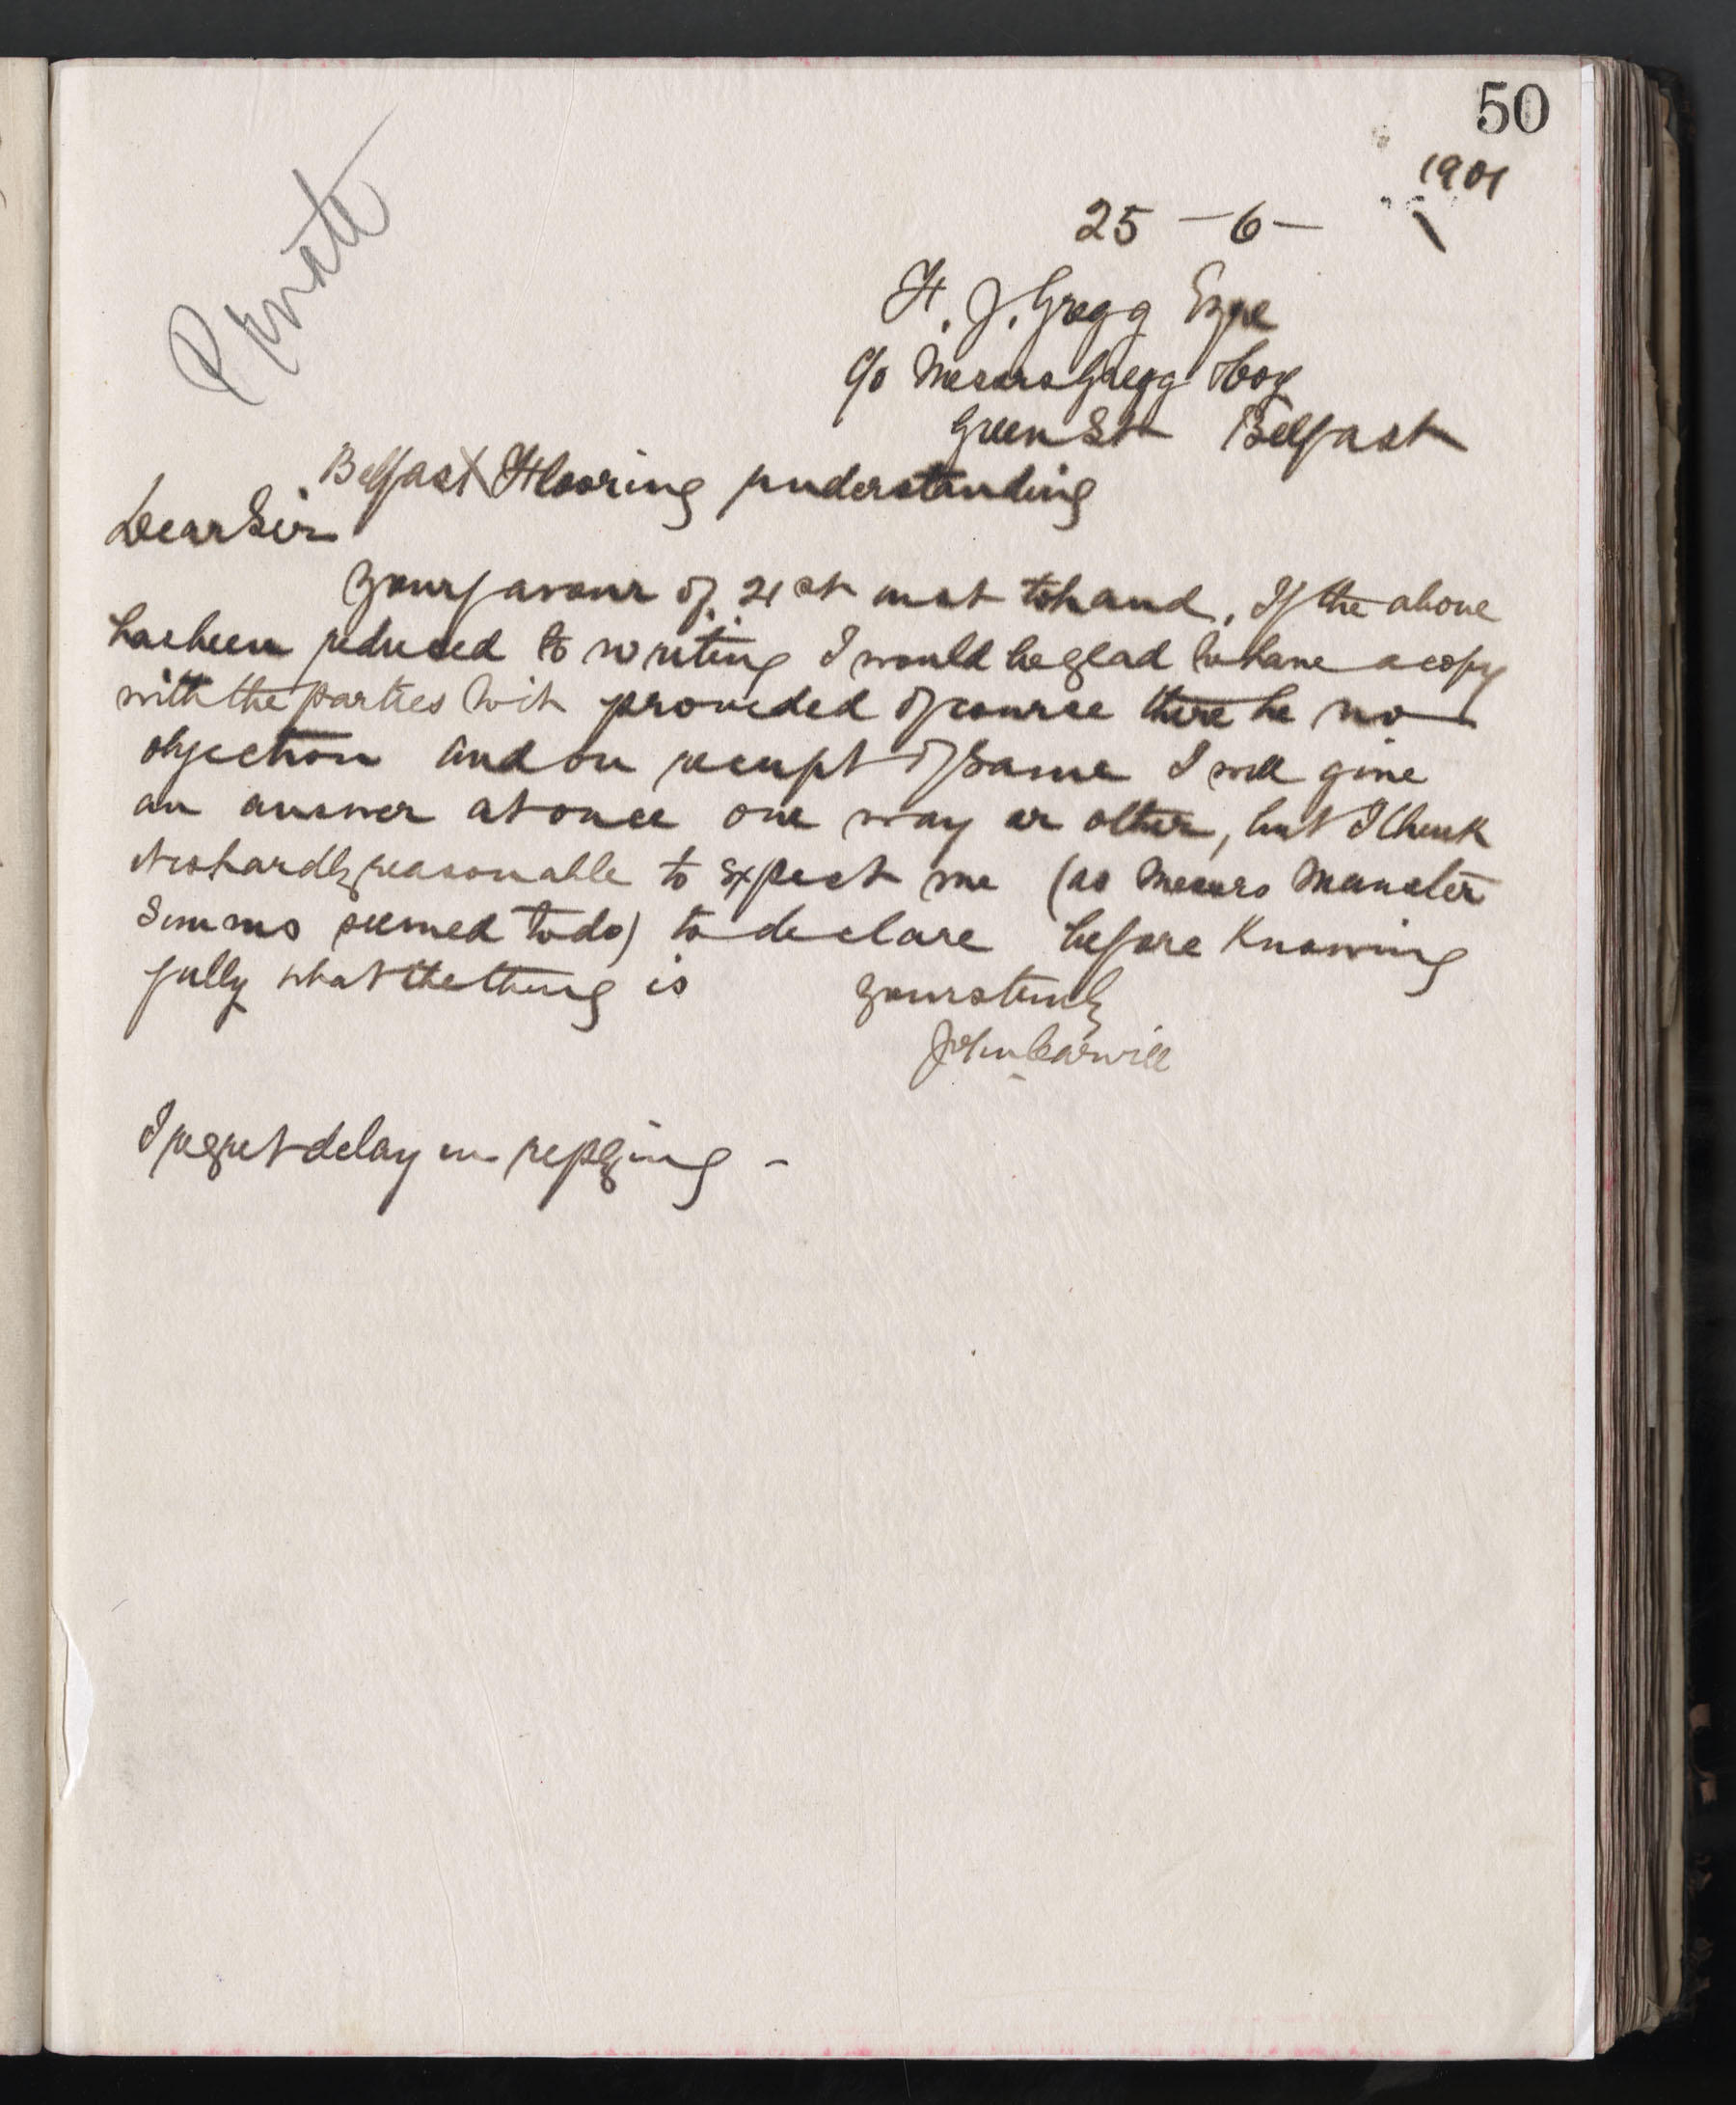 50
Private
1901
25 - 6 -
H. J. Gregg Esqre
c/o Messrs Gregg & Coy
Green St Belfast
Belfast Flooring understanding
Dear Sir
Your favour of 21st inst to hand. If the above
has been reduced to writing I would be glad to have a copy
with the parties to it provided of course there be no
objection and on receipt of same I will give
an answer at once one way or other, but I think
it is hardly reasonable to expect me (as Messrs
Simms seemed to do) to declare before knowing
fully what the thing is
yours truly
John Carvill
I regret delay in replying -